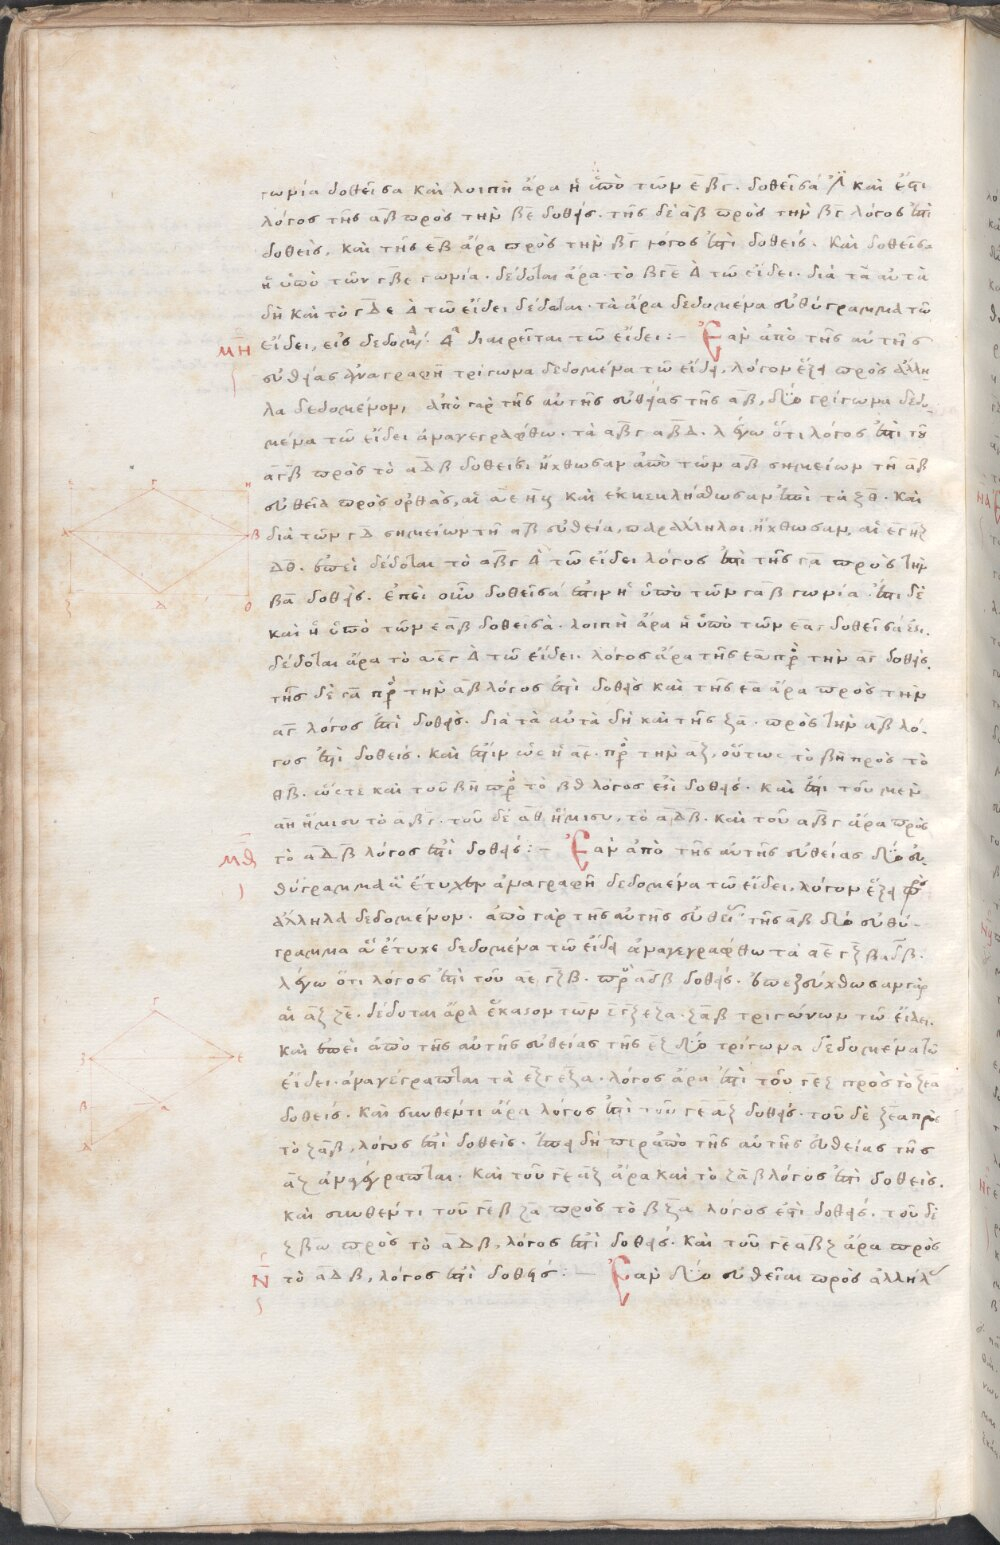 γωνία δοθεῖσα καὶ λοιπὴ ἄρα ἡ ὑπὸ τῶν ε β γ. δοθεῖσά καὶ ἐπὶ
λόγος τῆς αβ πρὸς τὴν βε δοθείς. τῆς δὲ αβ πρὸς τὴν βγ λόγος ἐστὶ
δοθεὶς, καὶ τῆς εβ ἄρα πρὸς τὴν βγ λόγος ἐστὶ δοθείς. καὶ δοθεῖσα
ἡ ὑπὸ τῶν γβε γωνία. δέδοται ἄρα τὸ βγε Δ τῶ εἴδει. διὰ τὰ αὐτὰ
δὴ καὶ τὸ γΔε Δ τῶ εἴδει δέδοται. τὰ ἄρα δεδομένα εὐθύγραμμα τῶ
ΜΗ εἴδει, εἰς δεδομ Δ διαιρεῖται τῶ εἴδει :– Ἐὰν ἀπὸ τῆς αὐτῆς
εὐθείας ἀναγραφῆ τρίγωνα δεδομένα τῶ εἴδει, λόγον ἕξει πρὸς ἄλλη
λα δεδομένον, ἀπὸ γὰρ τῆς αὐτῆς εὐθείας τῆς αβ, δύο τρίγωνα δεδο
μένα τῶ εἴδει ἀναγεγράφθω. τὰ αβγ αβΔ. λέγω ὅτι λόγος ἐστὶ τοῦ
αγβ πρὸς τὸ αΔβ δοθείς. ἤχθωσαν ἀπὸ τῶν αβ σημείων τῆ αβ
εὐθεῖα πρὸς ὀρθὰς, αἱ αε ηβ καὶ ἐκβεβλήσθωσαν ἐπὶ τὰ ζθ. καὶ
διὰ τῶν γΔ σημείων τῆ αβ εὐθεία, παράλληλοι ἤχθωσαν, αἱ εγη ζ
Δθ. ἐπεὶ δέδοται τὸ αβγ Δ τῶ εἴδει λόγος ἐστὶ τῆς γα πρὸς τὴν
βα δοθείς. ἐπεὶ οὖν δοθεῖσά ἐστιν ἡ ὑπὸ τῶν γαβ γωνία. ἔστι δὲ
καὶ ἡ ὑπὸ τῶν εαβ δοθεῖσα. λοιπὴ ἄρα ἡ ὑπὸ τῶν εαγ δοθεῖσά ἐστι.
δέδοται ἄρα τὸ αεγ Δ τῶ εἴδει. λόγος ἄρα τῆς εα πρὸς τὴν αγ δοθείς.
τῆς δὲ γα πρὸς τὴν αβ λόγος ἐστὶ δοθείς καὶ τῆς εα ἄρα πρὸς τὴν
αγ λόγος ἐστὶ δοθείς. διὰ τὰ αὐτὰ δὴ καὶ τῆς ζα. πρὸς τὴν αβ λό
γος ἐστὶ δοθείς. καὶ ἐστὶν ὡς ἡ αε. πρὸς τὴν αζ, οὕτως τὸ βη πρὸς τὸ
θβ. ὥστε καὶ τοῦ βη πρὸς τὸ βθ λόγος ἐστὶ δοθείς. καὶ ἔστι τοῦ μὲν
αη ἥμισυ τὸ αβγ. τοῦ δὲ αθ ἥμισυ, τὸ αΔβ. καὶ τοῦ αβγ ἄρα πρὸς
ΜΘ τὸ αΔβ λόγος ἐστὶ δοθείς :– Ἐὰν ἀπὸ τῆς αὐτῆς εὐθείας δύο εὐ
θύγραμμα ἃ ἔτυχεν ἀναγραφῆ δεδομένα τῶ εἴδει, λόγον ἕξει πρὸς
ἄλληλα δεδομένον. ἀπὸ γὰρ τῆς αὐτῆς εὐθείας τῆς αβ δύο εὐθύ
γραμμα ἃ ἔτυχε δεδομένα τῶ εἴδει ἀναγεγράφθω τὰ αεγζβ αδβ.
λέγω ὅτι λόγος ἐστὶ τοῦ αεγζβ. πρὸς αδβ δοθείς. ἐπεζεύχθωσαν γὰρ
αἱ αζ ζε. δέδοται ἄρα ἕκαστον τῶν εγζ εζα. ζαβ τριγώνων τῶ εἴδει.
καὶ ἐπεὶ ἀπὸ τῆς αὐτῆς εὐθείας τῆς εζ δύο τρίγωνα δεδομένα τῶ
εἴδει. ἀναγέγραπται τὰ εζγ εζα. λόγος ἄρα ἐστὶ τοῦ γεζ πρὸς τὸ ζεα
δοθείς. καὶ συνθέντι ἄρα λόγος ἐστὶ τοῦ γεαζ δοθείς. τοῦ δὲ ζεα πρὸς
τὸ ζαβ, λόγος ἐστὶ δοθείς. ἐπεὶ δήπερ ἀπὸ τῆς αὐτῆς εὐθείας τῆς
αζ ἀναγέγραπται. καὶ τοῦ γεαζ ἄρα καὶ τὸ ζαβ λόγος ἐστὶ δοθείς.
καὶ συνθέντι τοῦ γεβζα πρὸς τὸ βζα λόγος ἐστὶ δοθείς. τοῦ δὲ
ζβω πρὸς τὸ αΔβ, λόγος ἐστὶ δοθείς. καὶ τοῦ γεαβζ ἄρα πρὸς
Ν τὸ αΔβ, λόγος ἐστὶ δοθείς :– Ἐὰν δύο εὐθεῖαι πρὸς ἀλλήλ